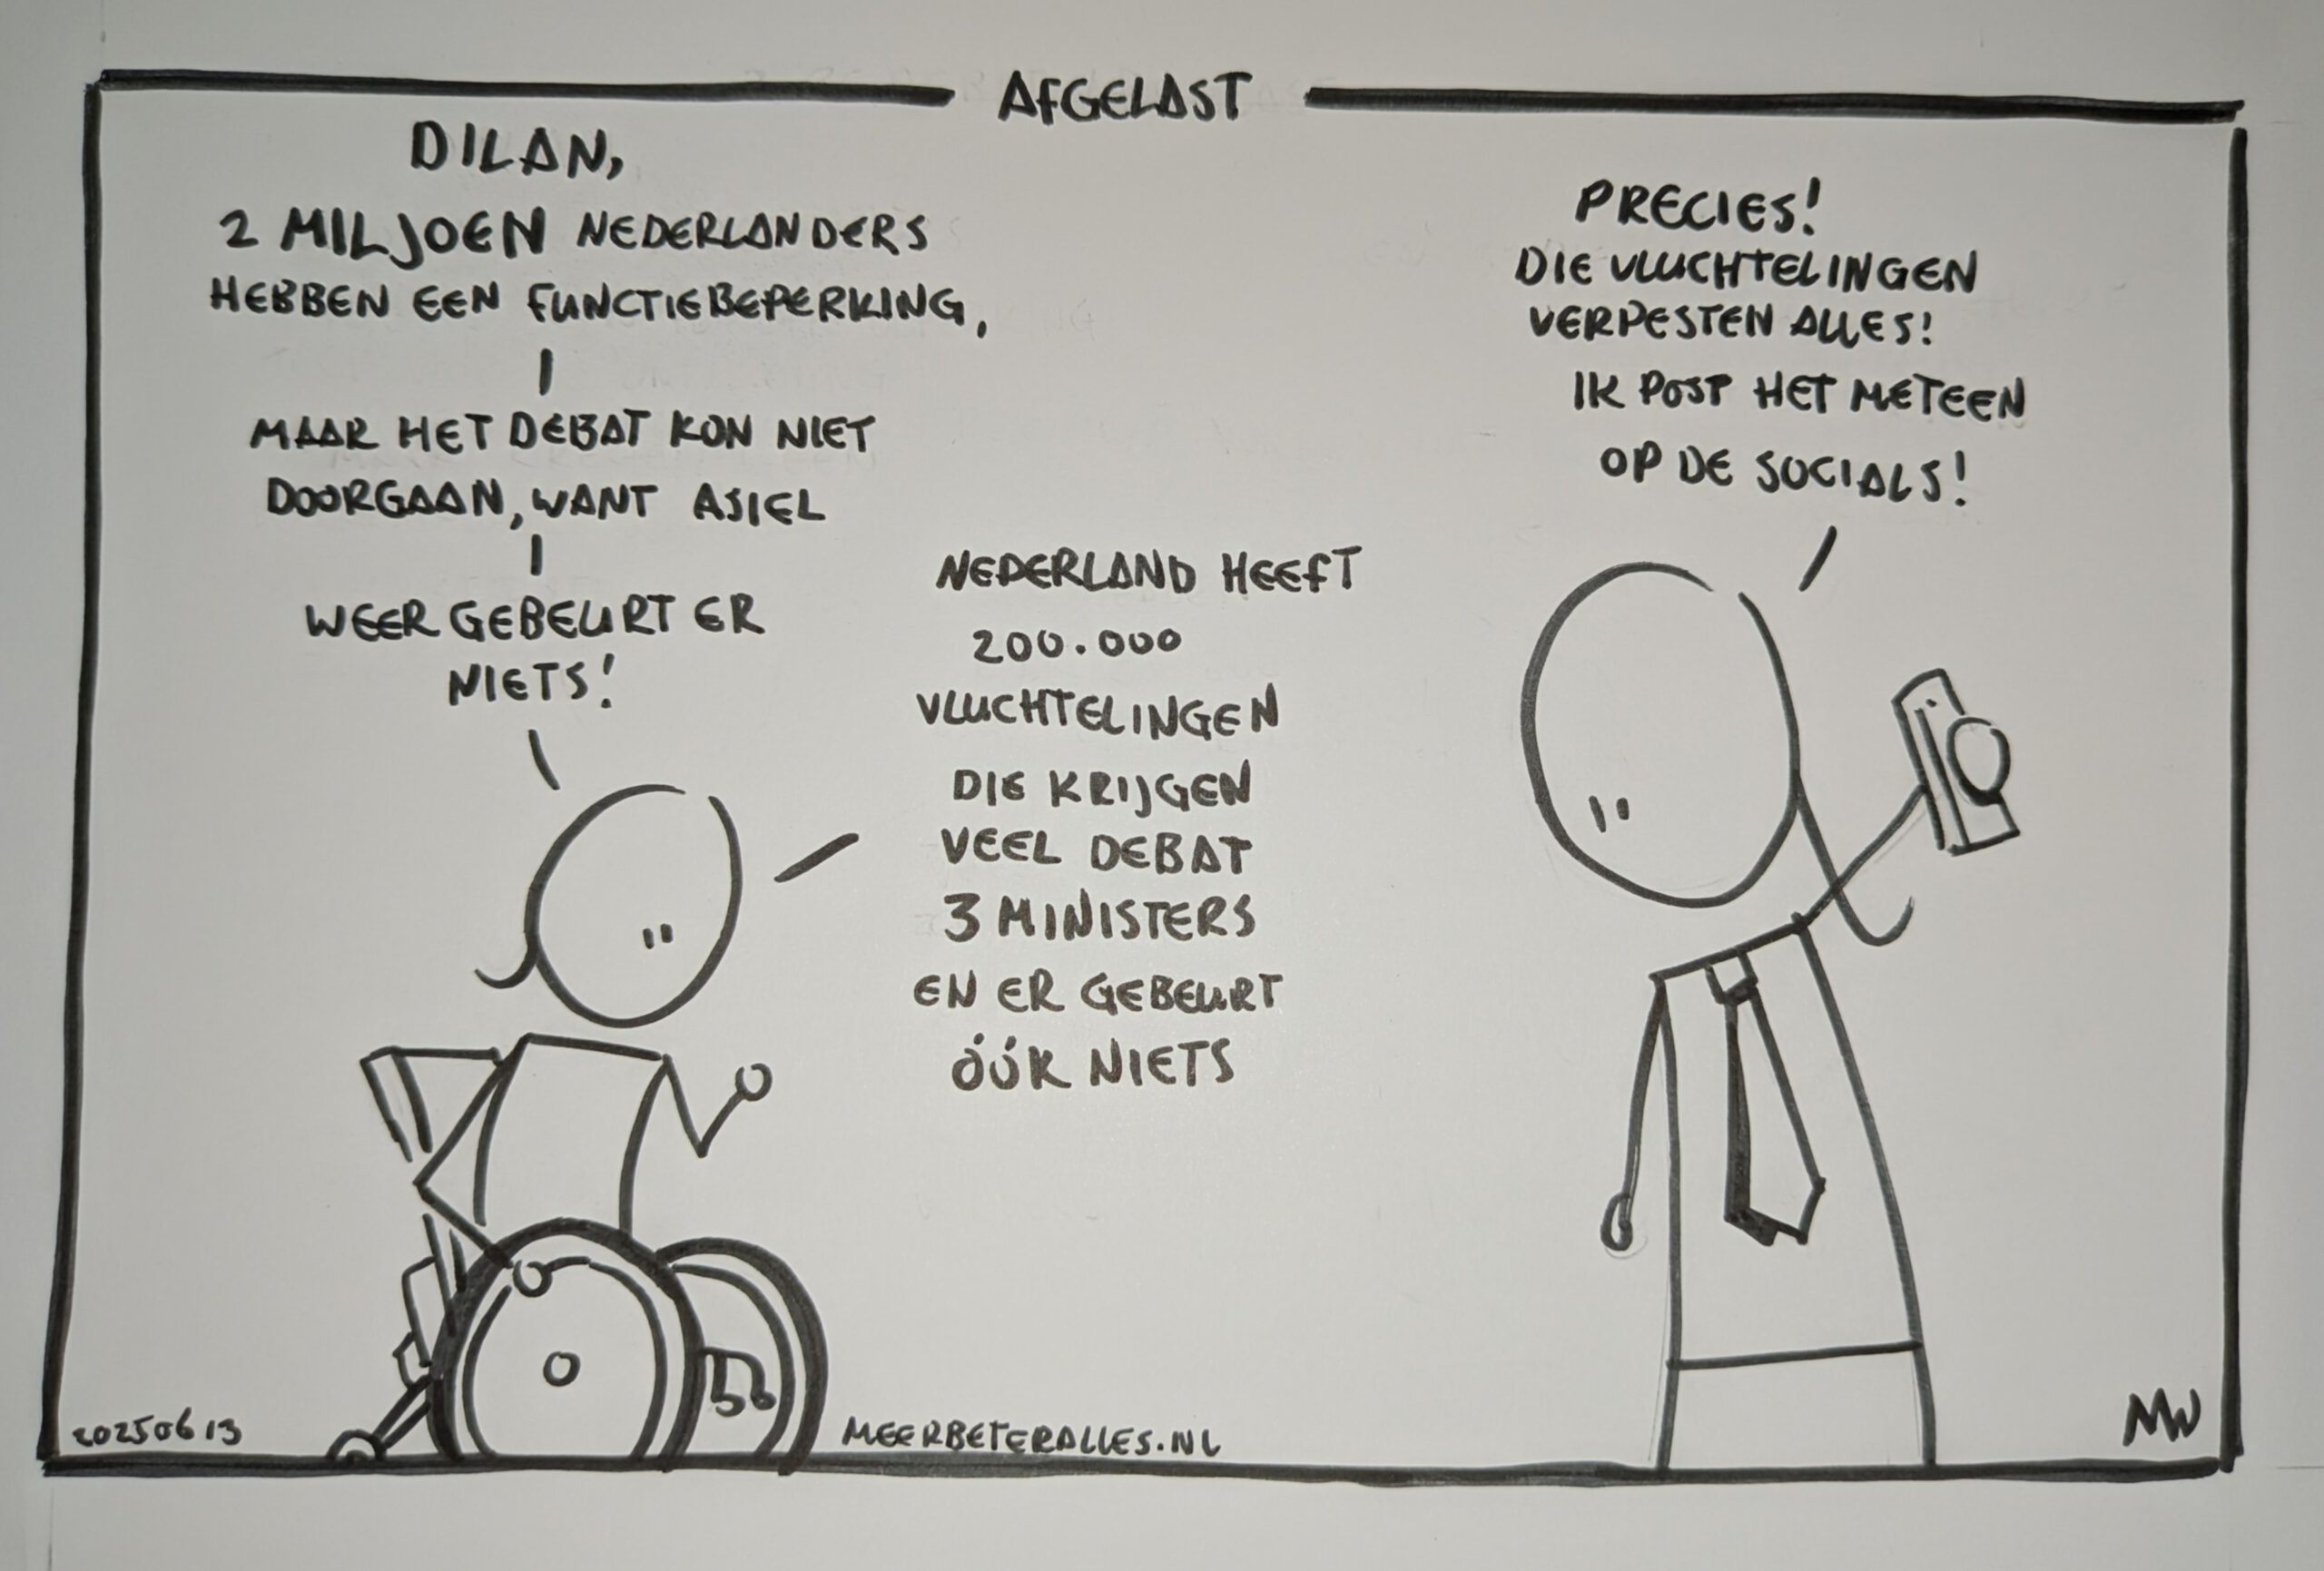 AFGELAST
DILAN,
2 MILJOEN NEDERLANDERS
HEBBEN EEN FUNCTIEBEPERKING,
MAAR HET DEBAT KON NIET
DOORGAAN, WANT ASIEL
WEER GEBEURT ER
NIETS!
NEDERLAND HEEFT
200.000
VLUCHTELINGEN
DIE KRIJGEN
VEEL DEBAT
3 MINISTERS
EN ER GEBEURT
ÓÓK NIETS
PRECIES!
DIE VLUCHTELINGEN
VERPESTEN ALLES!
IK POST HET METEEN
OP DE SOCIALS!
20250613
MEERBETERALLES.NL
MW